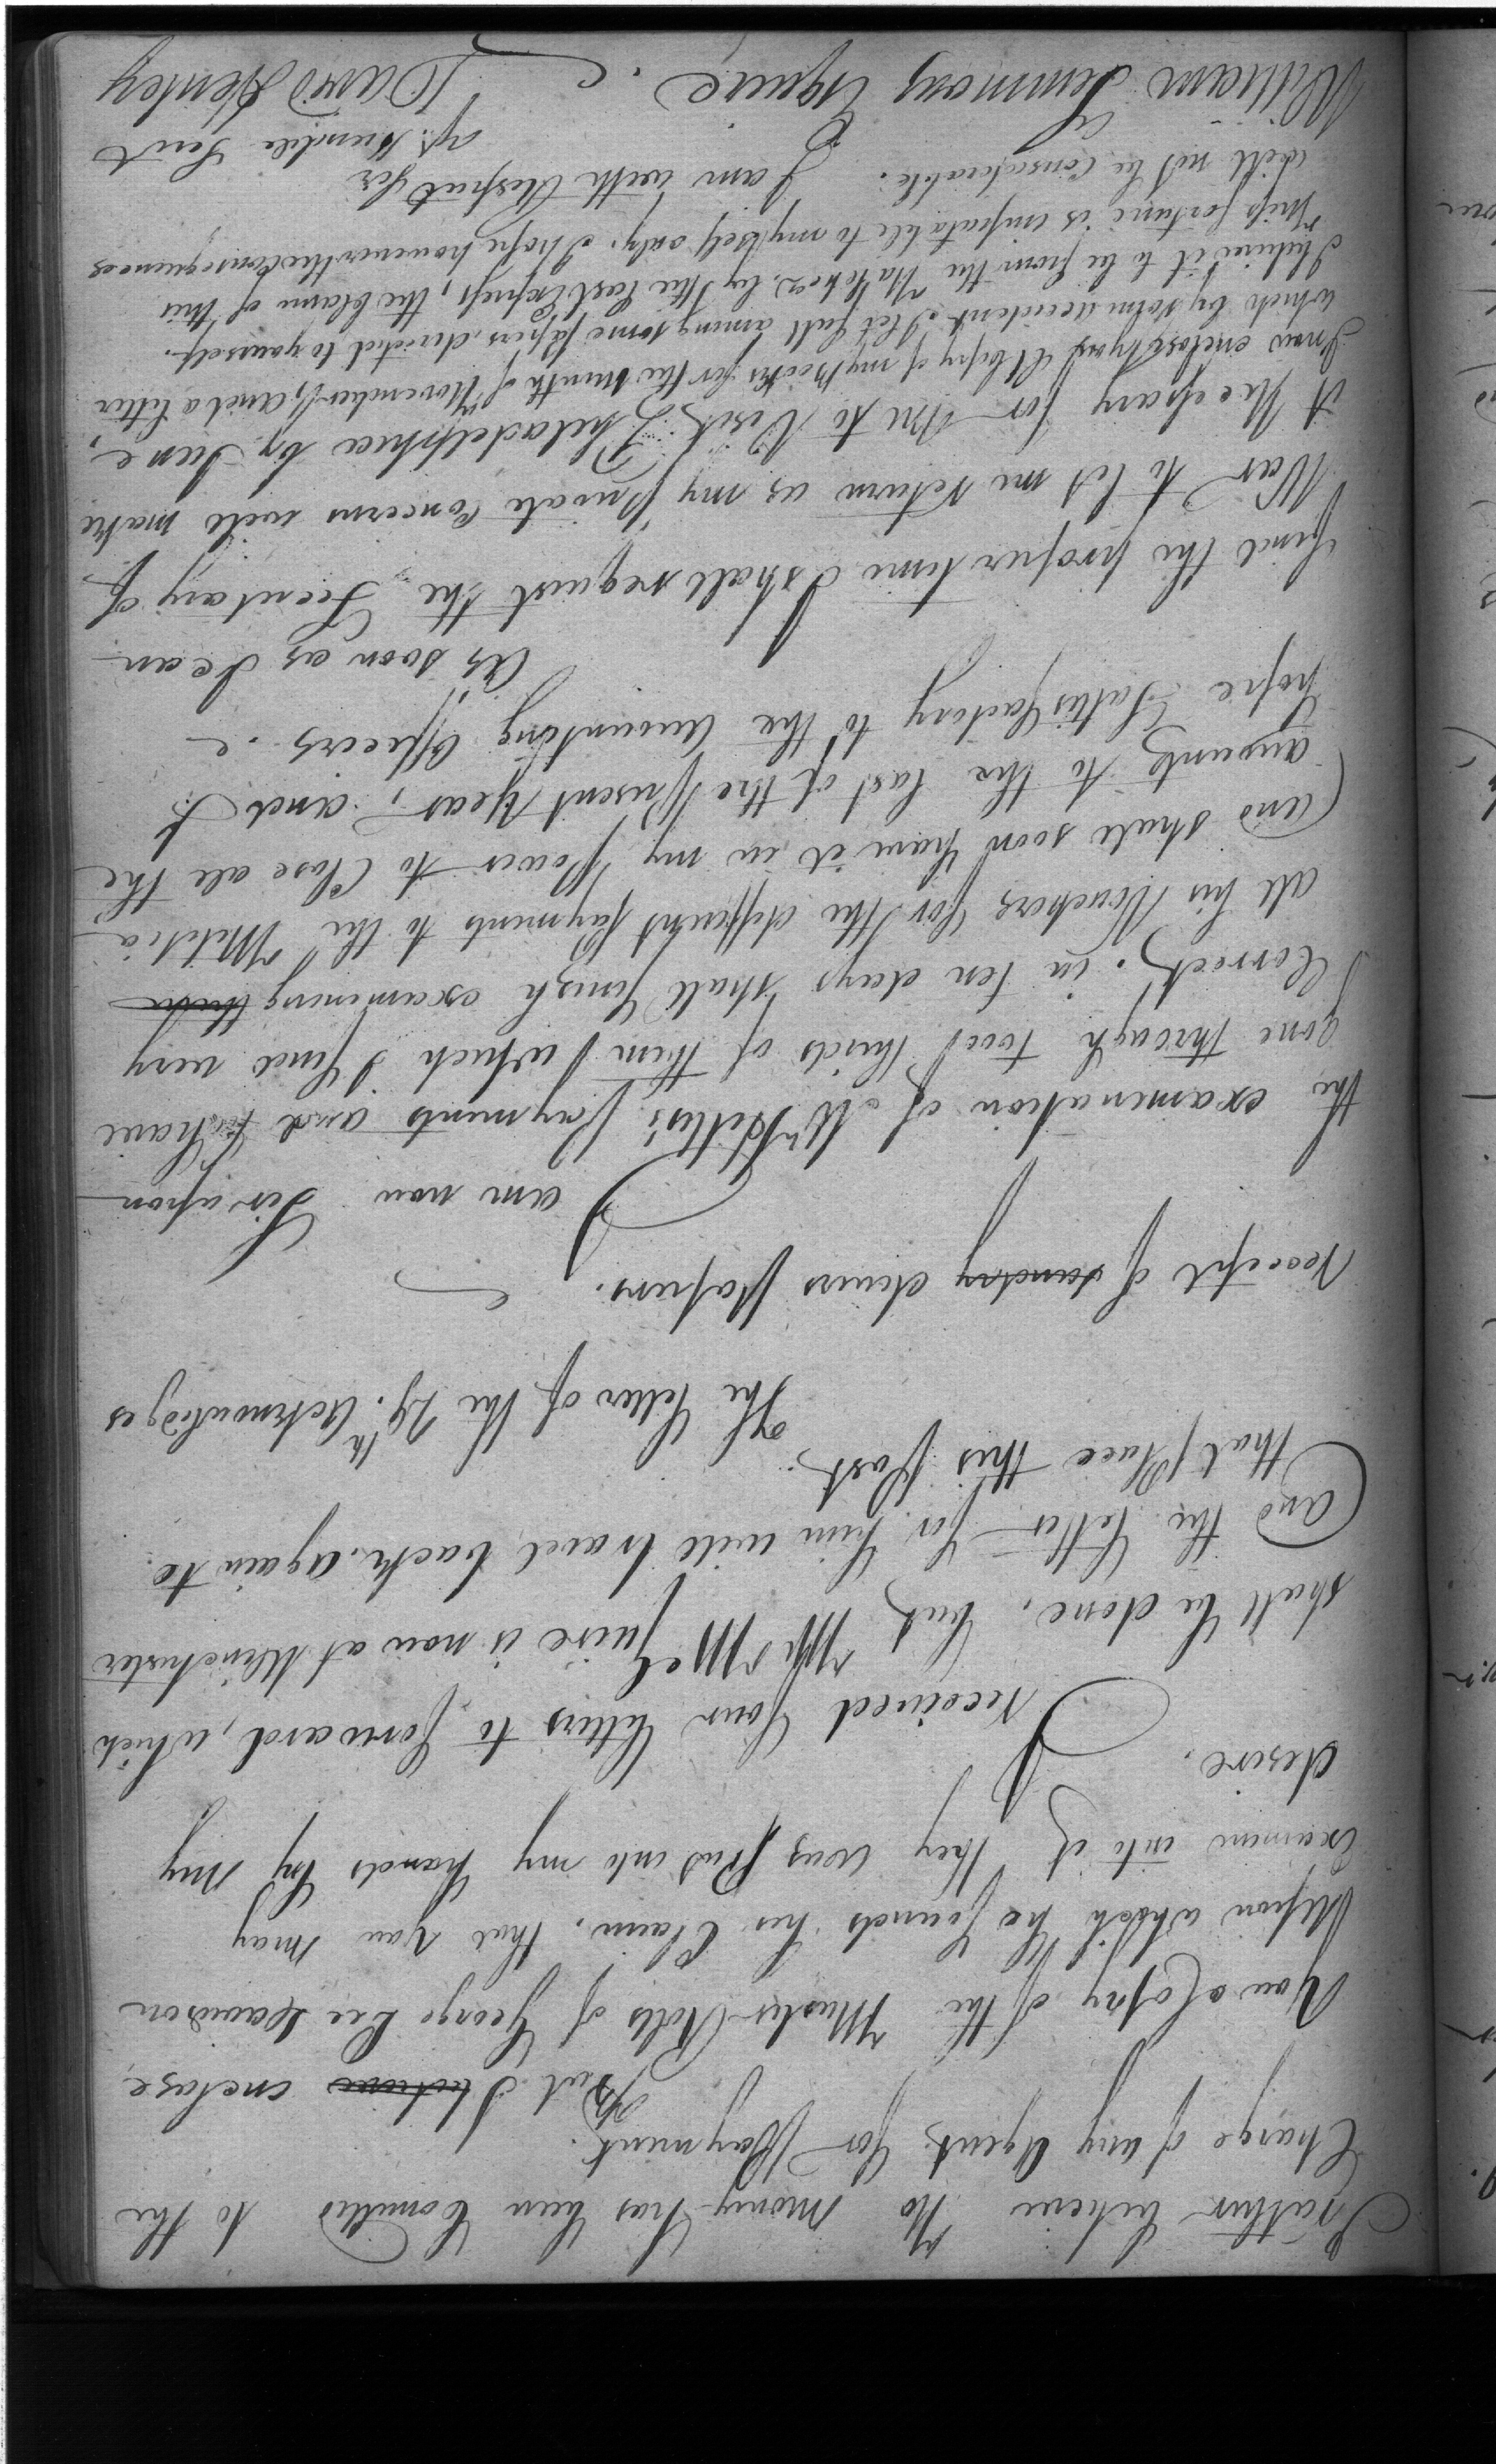 I rather believe No money has been Comitted to the
Charge of any Agent for Payment.
But I believe enclose
You a Copy of the Muster Rolls of George Lee Davidson
Upon which he founds his Claim, that you may
examine into it they was Put into my hands by my
desire.
I received Your letters to forward, which
shall be done, but Mr. McGuire is now at Winchester
And the letter for him will travel back again to
that Place this Post.
The letter of the 24th. Acknowledges
receipt of sundry divers Papers.
I am now far upon
the examination of Mr. Hills's Payments and have
gone through two thirds of them which I find very
Correct. in ten days shall finish examining
all his Vouchers for the different payments to the Militia
and shall soon have it in my Power to Close all the
accounts to the last of the Present Year, and I
hope Satisfactory to the Accounting Officers.
As soon as I can
find the proper time I shall request the Secretary of
War to let me return as my Private Concerns will make
it Necessary for me to Visit Philadelphia by June,
I now enclose to you a Copy of my Books for the Month of November, and a letter
which by some accident I let fall among some papers directed to yourself.
I believe it to be from the by the last Express, the blame of this
Misfortune is imputable to myself only. I hope however the Consequences
will not be Considerable. I am with Respect Yr
yr. humble Servt
William Simmons Esquire David Henley